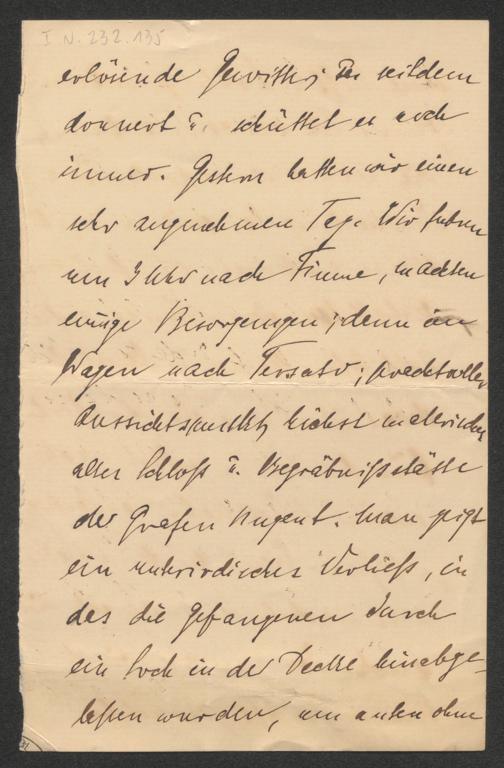 I N. 232.135
erlösende Gewitter; seitdem
donnert u. schüttet es noch
immer. Gestern hatten wir einen
sehr angenehmen Tag. Wir fuhren
um 3 Uhr nach Fiume, machten
einige Besorgungen; dann im
Wagen nach Tersato; prachtvoller
Aussichtspunkt, höchst malerisches
altes Schloß u. Begräbnißstätte
der Grafen Nugent. Man zeigt
ein unterirdisches Verließ, in
das die Gefangenen durch
ein Loch in der Decke hinabge-
lassen wurden, um unten ohne